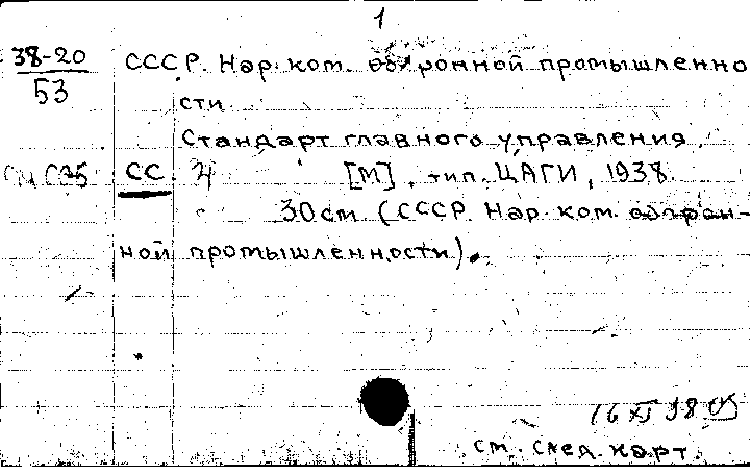 1
38-20 СССР. Нар. ком. оборонной промышленно
53
сти
Стандарт главного управления
СС [М], тип. ЦАГИ, 1938.
30 см. (СССР. Нар. ком. оборон-
ной промышленности).
16 XI 38
см. след. карт.